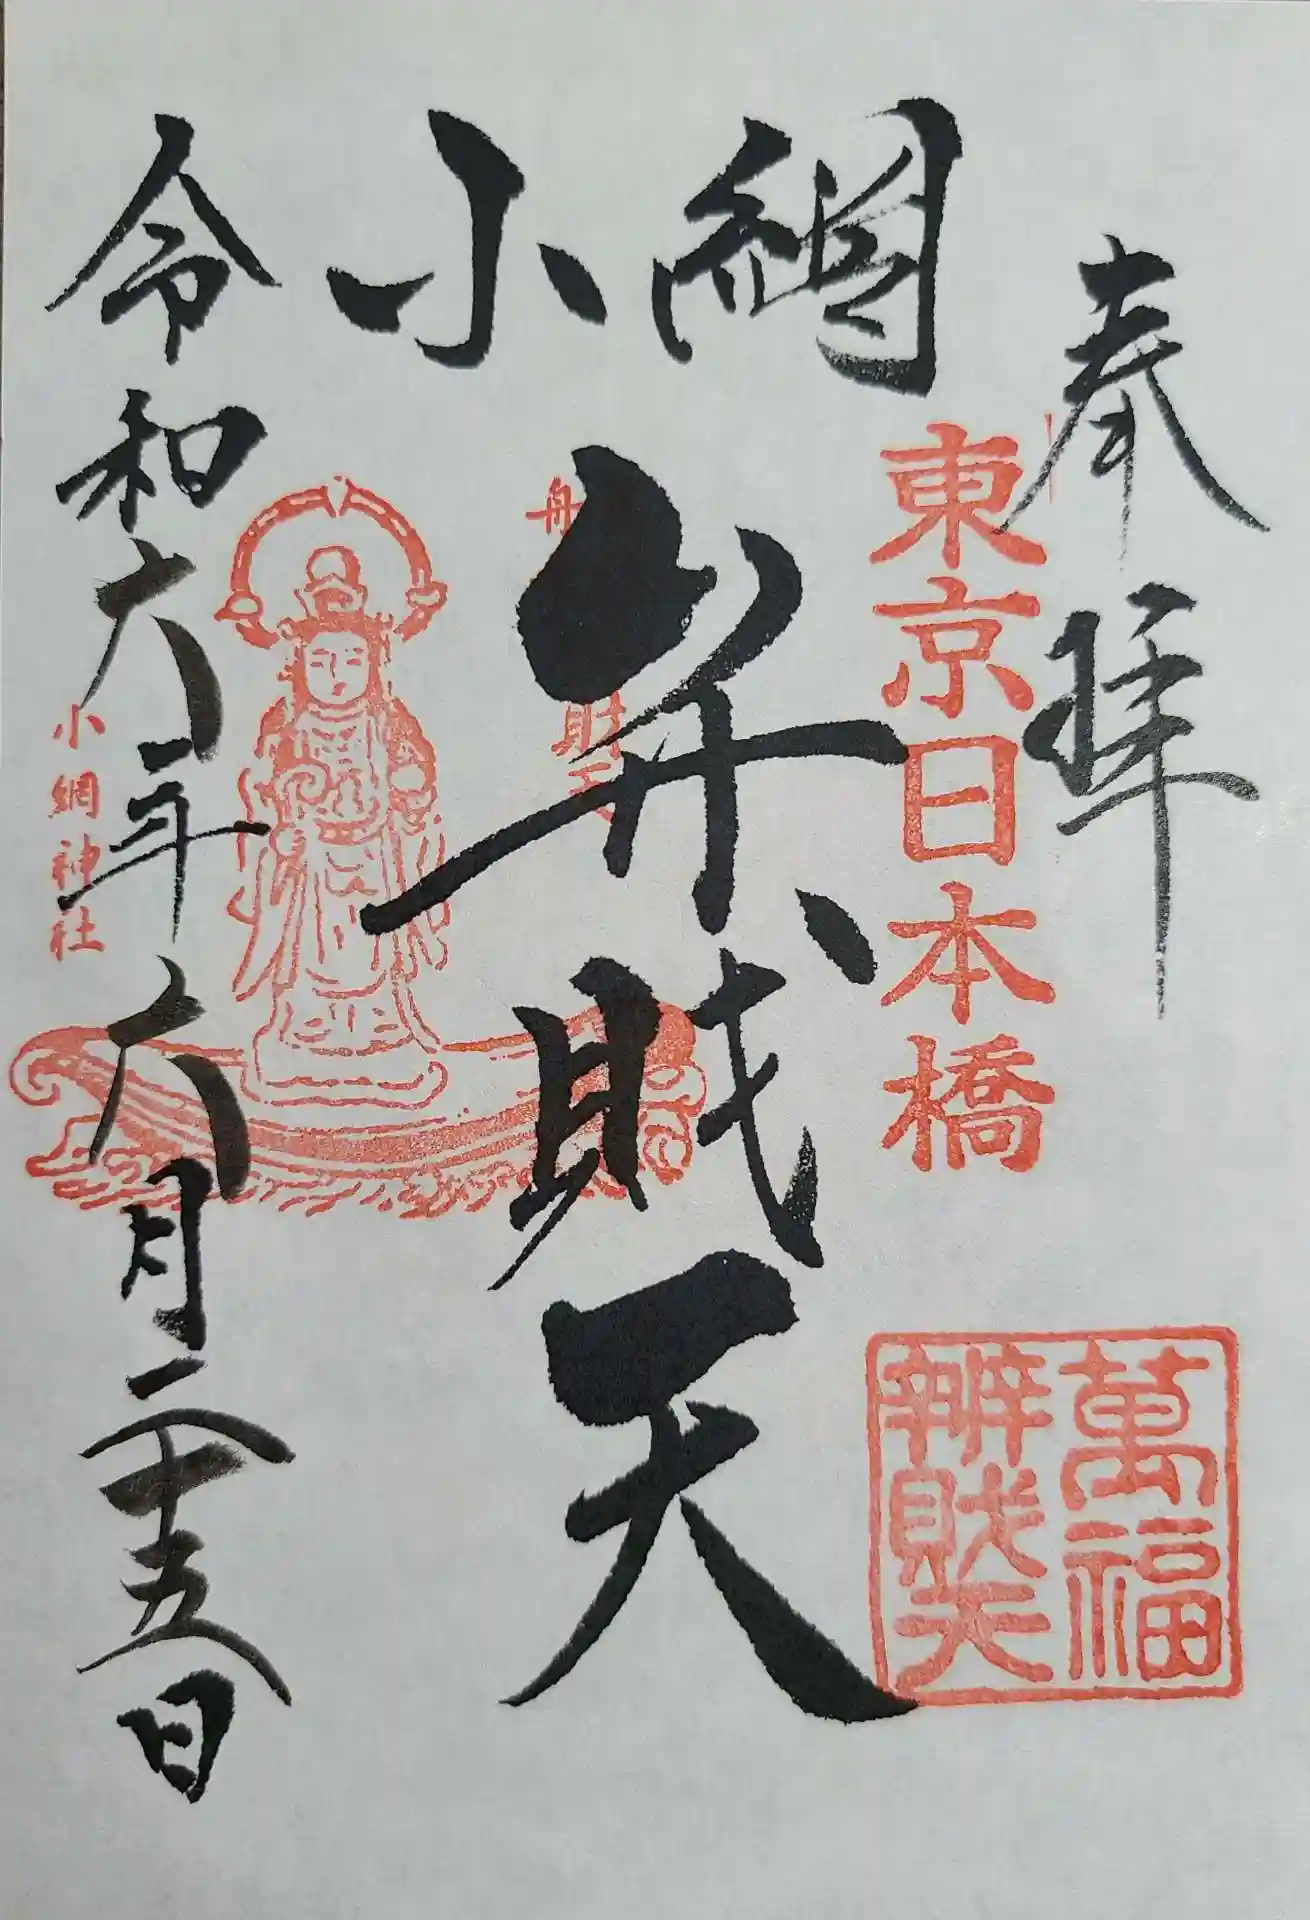 奉拝
東京日本橋
萬福
辨財天
小網
弁財天
舟
財天
令和六年六月二十五日
小網神社